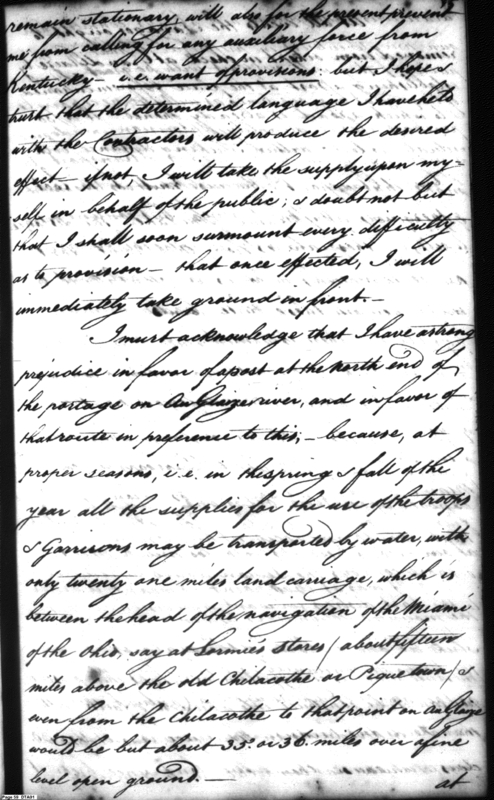 remain stationary, will also for the present prevent
me from calling for any auxiliary force from
Kentucky — i.e. want of provisions: but I hope &
trust that the determined language I have held
with the Contractors will produce the desired
effect — if not, I will take the supply upon my=
self in behalf of the public; & doubt not but
that I shall soon surmount every difficulty
as to provision — that once effected, I will
immediately take ground in front. —
I must acknowledge that I have a strong
prejudice in favor of a post at the north end of
the portage on Au Glaize river, and in favor of
that route in preference to this; — because, at
proper seasons, i.e. in the spring & fall of the
year all the supplies for the use of the troops
& Garrisons may be transported by water, with
only twenty one miles land carriage, which is
between the head of the navigation of the Miami
of the Ohio, say at Lormies stores / about fifteen
miles above the old Chilacothe or Pique town / &
even from the Chilacothe to that point on Au Glaize
would be but about 35. or 36. miles over a fine
level open ground. —
at
Page 59